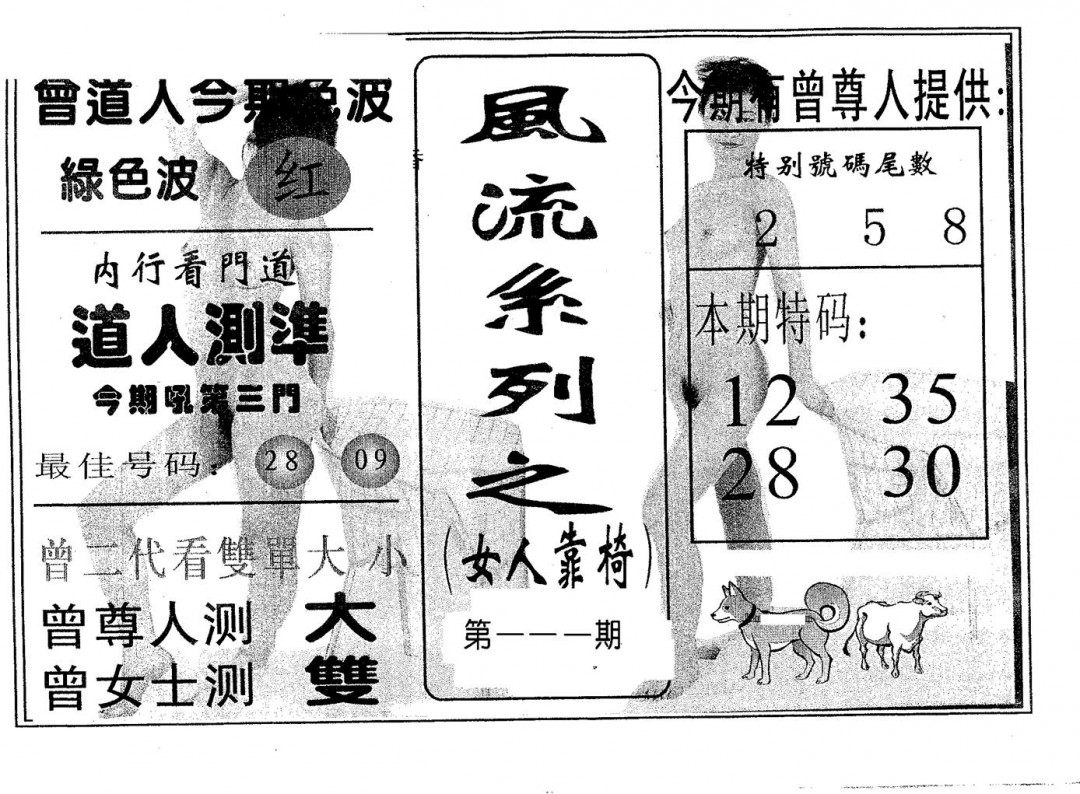 曾道人今期色波
綠色波 红
内行看門道
道人測準
今期吼第三門
最佳号码： 28 09
曾二代看雙單大小
曾尊人测 大
曾女士测 雙
風流系列之
（女人靠椅）
第一一一期
今期有曾尊人提供：
特别號碼尾數
2 5 8
本期特码：
12 35
28 30